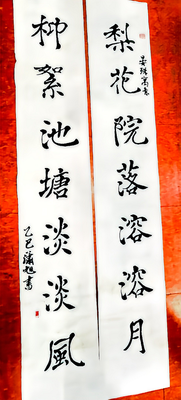 梨花院落溶溶月
晏殊寓意
柳絮池塘淡淡風
乙巳
書